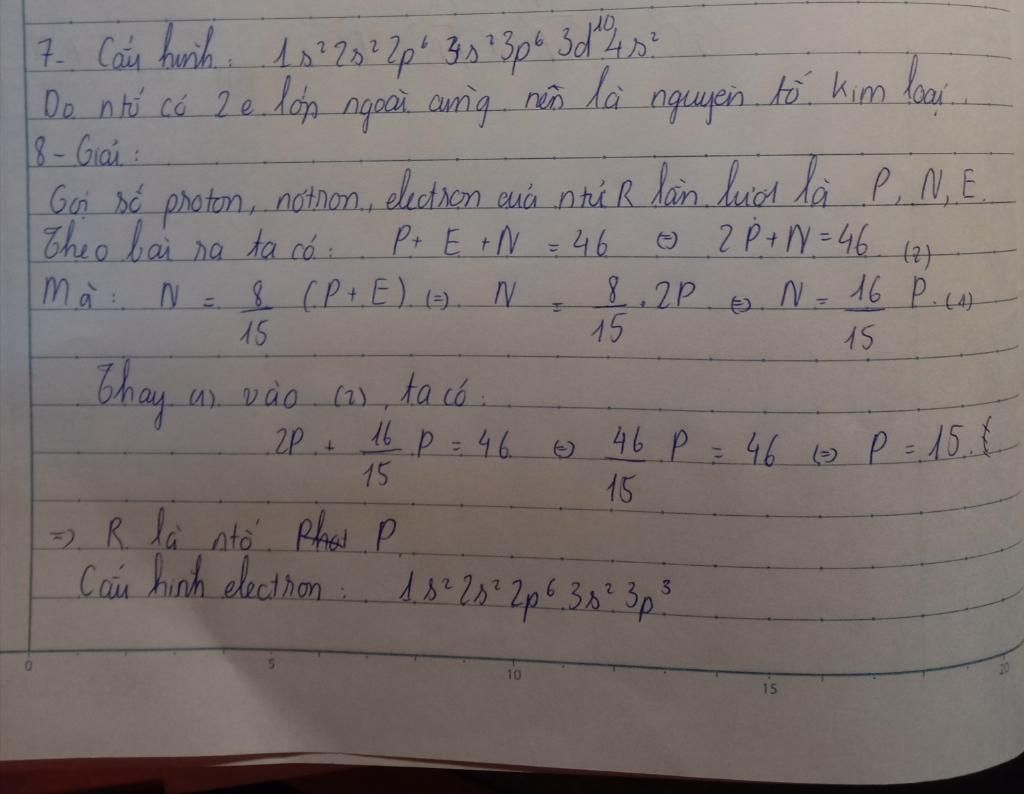 7- Cấu hình: 1s² 2s² 2p⁶ 3s² 3p⁶ 3d¹⁰ 4s²
Do ntố có 2e lớp ngoài cùng nên là nguyên tố kim loại.
8- Giải:
Gọi số proton, nơtron, electron của ntử R lần lượt là P, N, E.
Theo bài ra ta có: P + E + N = 46 ⇔ 2P + N = 46 (2)
Mà: N = 8/15 (P+E) ⇔ N = 8/15 . 2P ⇔ N = 16/15 P. (1)
Thay (1) vào (2), ta có:
2P + 16/15 P = 46 ⇔ 46/15 P = 46 ⇔ P = 15.
=> R là ntố P
Cấu hình electron: 1s² 2s² 2p⁶ 3s² 3p³
0 5 10 15 20